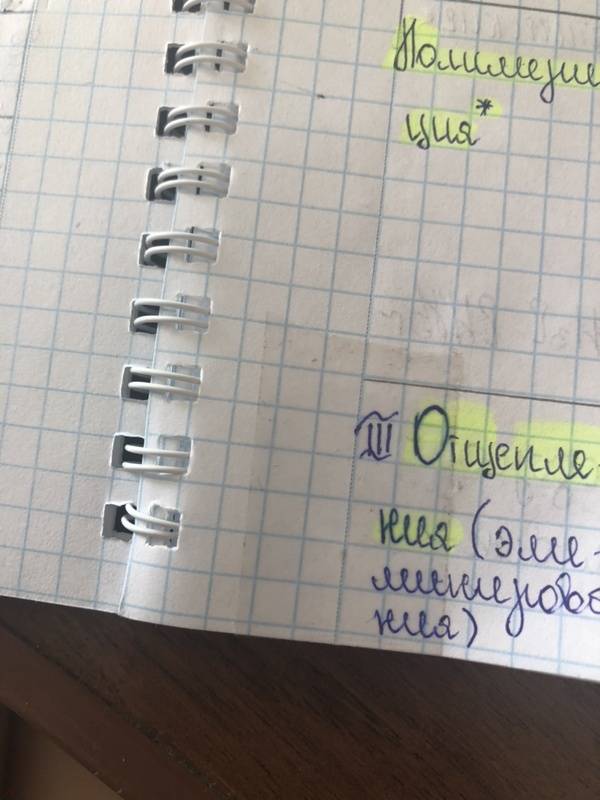 Полимериза
ция*
III Отщепле-
ния (эли-
минирова
ния)